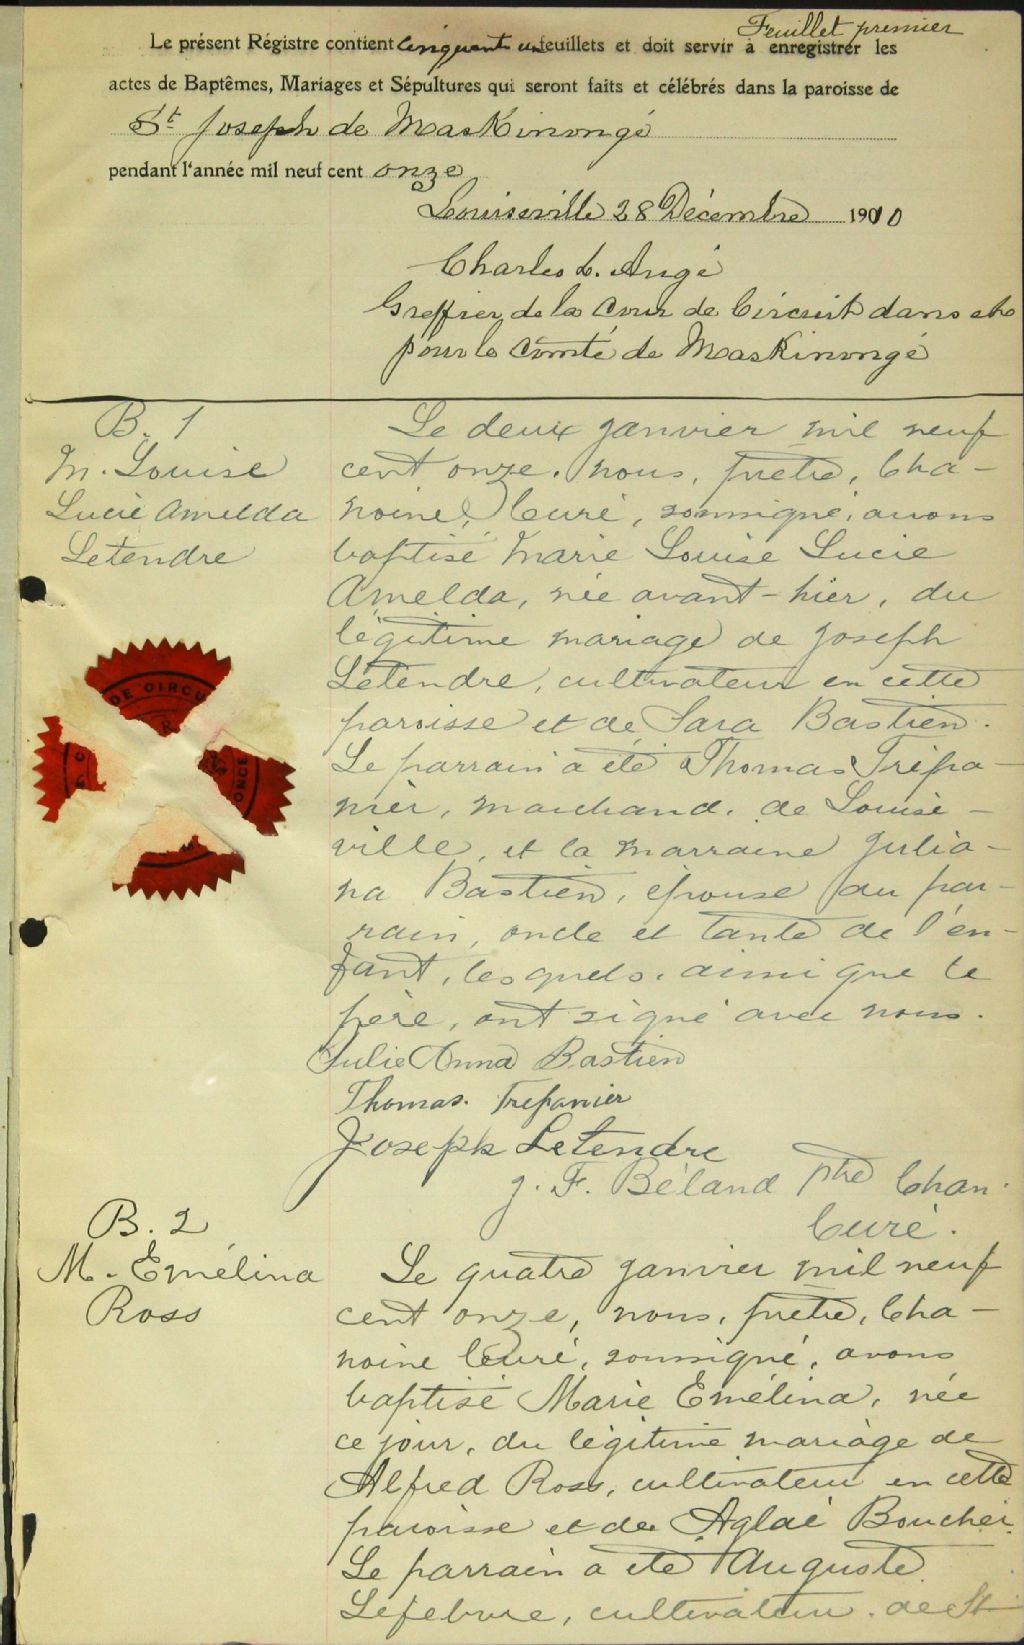 Feuillet premier
Le présent Régistre contient cinquante un feuillets et doit servir à enregistrer les
actes de Baptêmes, Mariages et Sépultures qui seront faits et célébrés dans la paroisse de
St Joseph de Maskinongé
pendant l'année mil neuf cent onze
Louiseville 28 Décembre 1910
Charles L. Angé
Greffier de la Cour de Circuit dans et
pour le Comté de Maskinongé
B. 1
M. Louise
Lucie Amelda
Letendre
Le deux janvier mil neuf
cent onze, nous, prêtre, Cha-
noine, Curé, soussigné, avons
baptisé Marie Louise Lucie
Amelda, née avant-hier, du
légitime mariage de Joseph
Letendre, cultivateur en cette
paroisse et de Sara Bastien.
Le parrain a été Thomas Trépa-
nier, marchand, de Louise-
ville, et la marraine Julia-
na Bastien, épouse du par-
rain, oncle et tante de l'en-
fant, lesquels, ainsi que le
père, ont signé avec nous.
DE CIRCU
R
ONCE
Julie Anna Bastien
Thomas. Trepanier
Joseph Letendre
J. F. Béland ptre Chan.
Curé.
B. 2
M. Emélina
Ross
Le quatre janvier mil neuf
cent onze, nous, prêtre, Cha-
noine Curé, soussigné, avons
baptisé Marie Emélina, née
ce jour, du légitime mariage de
Alfred Ross, cultivateur en cette
paroisse et de Aglaé Boucher.
Le parrain a été Auguste
Lefebvre, cultivateur, de St